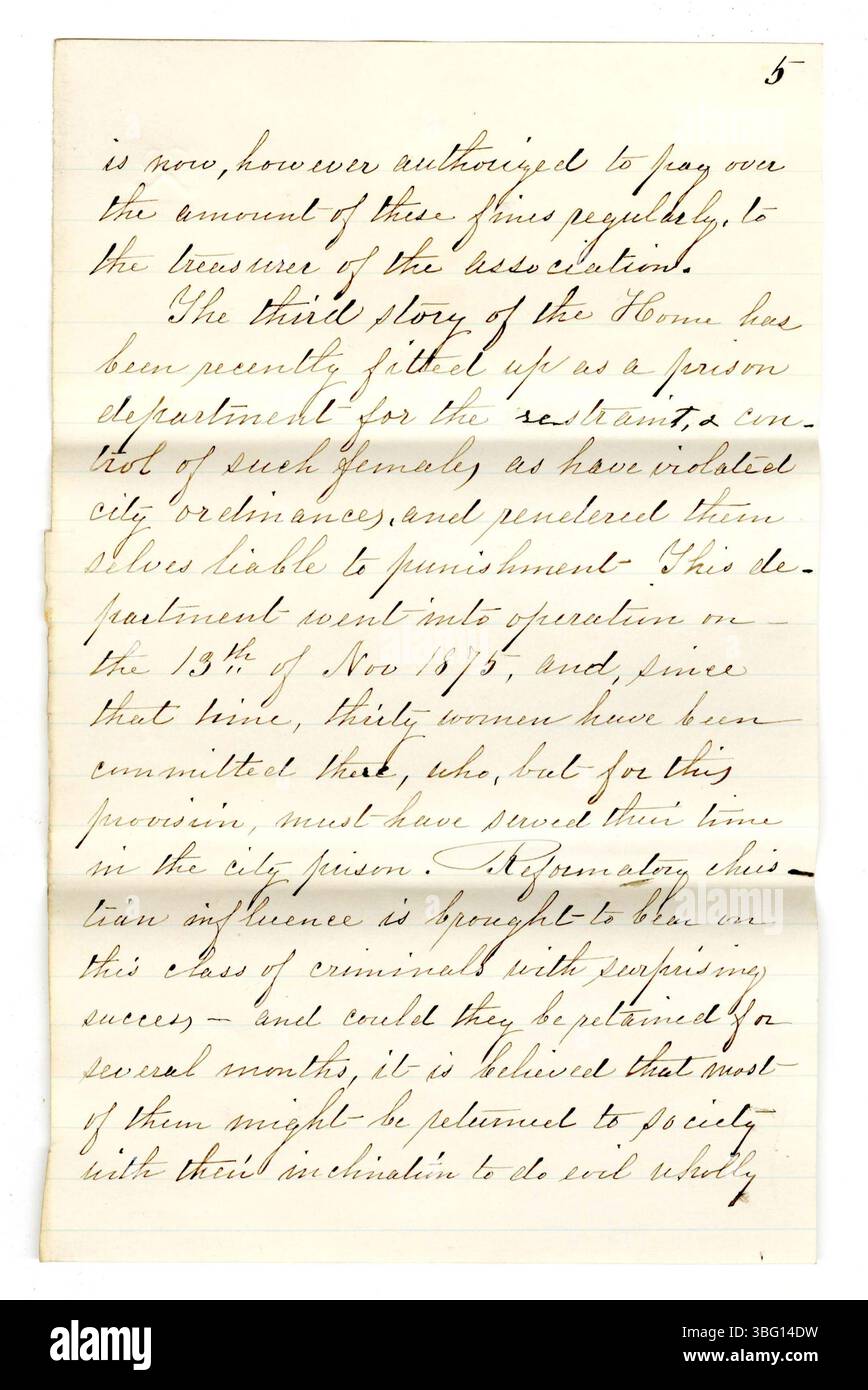 5
is now, however authorized to pay over
the amount of these fines regularly, to
the treasurer of the association.
The third story of the Home has
been recently fitted up as a prison
department for the restraint, & con-
trol of such females as have violated
city ordinances, and rendered them
selves liable to punishment This de-
partment went into operation on
the 13th of Nov 1875, and, since
that time, thirty women have been
committed there, who, but for this
provision, must have served their time
in the city prison. Reformatory chris-
tian influence is brought to bear on
this class of criminals with surprising
success – and could they be retained for
several months, it is believed that most
of them might be returned to society
with their inclination to do evil wholly
alamy
Image ID: 3BG14DW
www.alamy.com